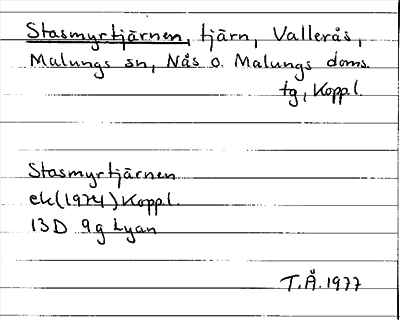 Stasmyrtjärnen, tjärn, Vallerås,
Malungs sn, Nås o. Malungs doms.
tg, Kopp.l.
Stasmyrtjärnen
ek(1974) Kopp.l.
13D 9g Lyan
T.Å. 1977